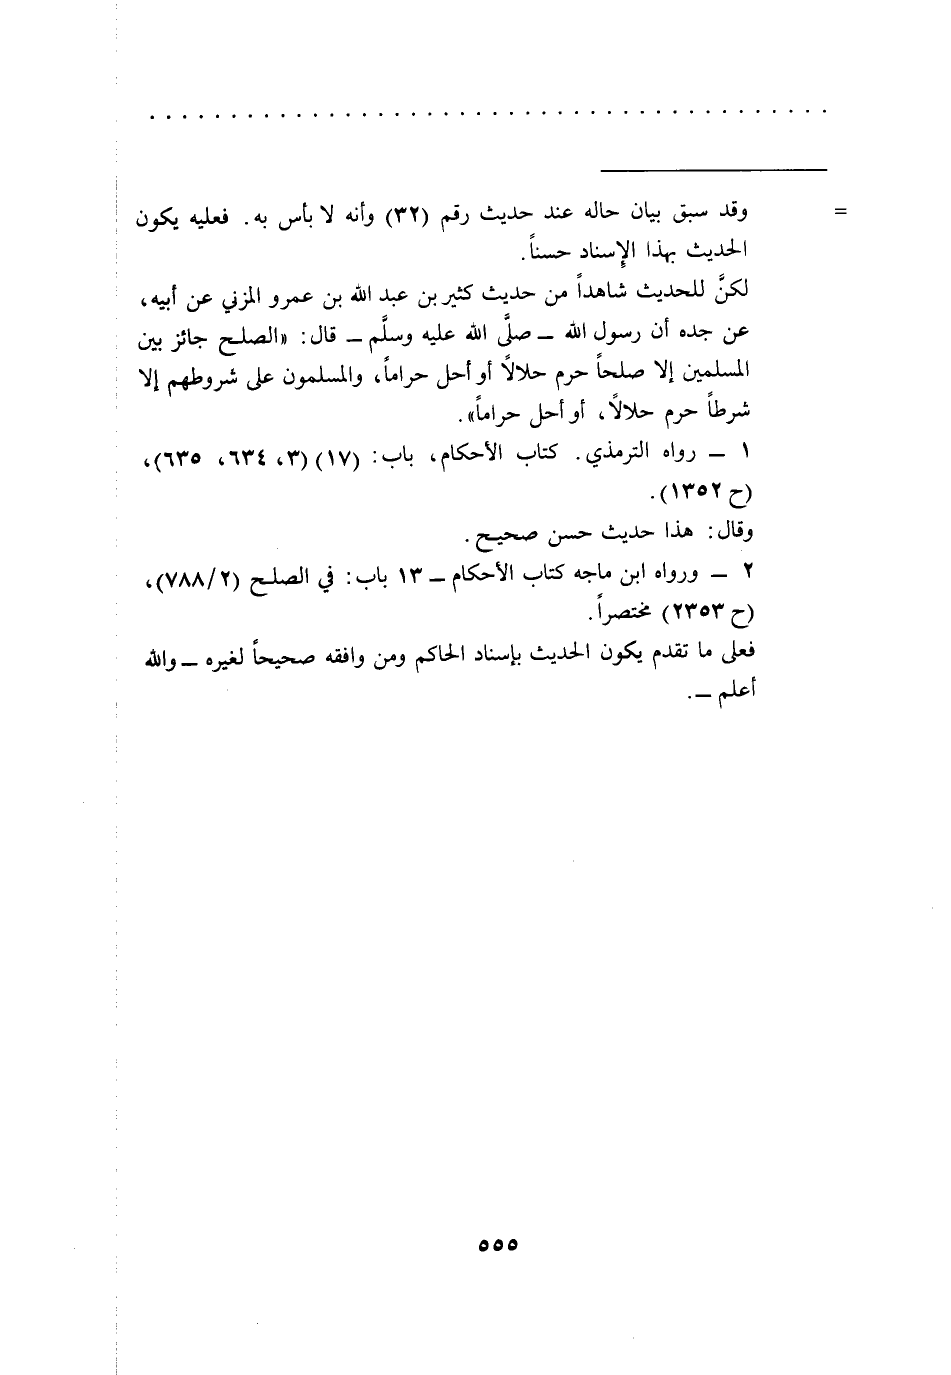 . . . . . . . . . . . . . . . . . . . . . . . . . . . . . . . . . . . . . . . . . .
= وقد سبق بيان حاله عند حديث رقم (٣٢) وأنه لا بأس به. فعليه يكون
الحديث بهذا الإسناد حسناً.
لكنَّ للحديث شاهداً من حديث كثير بن عبد الله بن عمرو المزني عن أبيه،
عن جده أن رسول الله ــ صلَّى الله عليه وسلَّم ــ قال: «الصلح جائز بين
المسلمين إلا صلحاً حرم حلالاً أو أحل حراماً، والمسلمون على شروطهم إلا
شرطاً حرم حلالاً، أو أحل حراماً».
١ ــ رواه الترمذي. كتاب الأحكام، باب: (١٧) (٣، ٦٣٤، ٦٣٥)،
(ح ١٣٥٢).
وقال: هذا حديث حسن صحيح.
٢ ــ ورواه ابن ماجه كتاب الأحكام ــ ١٣ باب: في الصلح (٧٨٨/٢)،
(ح ٢٣٥٣) مختصراً.
فعلى ما تقدم يكون الحديث بإسناد الحاكم ومن وافقه صحيحاً لغيره ــ والله
أعلم ــ.
٥٥٥